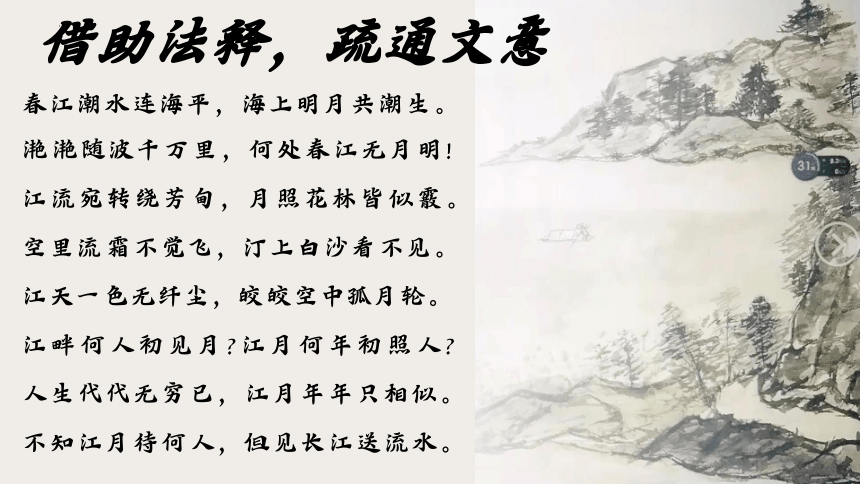 借助法释，疏通文意
春江潮水连海平，海上明月共潮生。
滟滟随波千万里，何处春江无月明!
江流宛转绕芳甸，月照花林皆似霰。
空里流霜不觉飞，汀上白沙看不见。
江天一色无纤尘，皎皎空中孤月轮。
江畔何人初见月?江月何年初照人?
人生代代无穷已，江月年年只相似。
不知江月待何人，但见长江送流水。
31